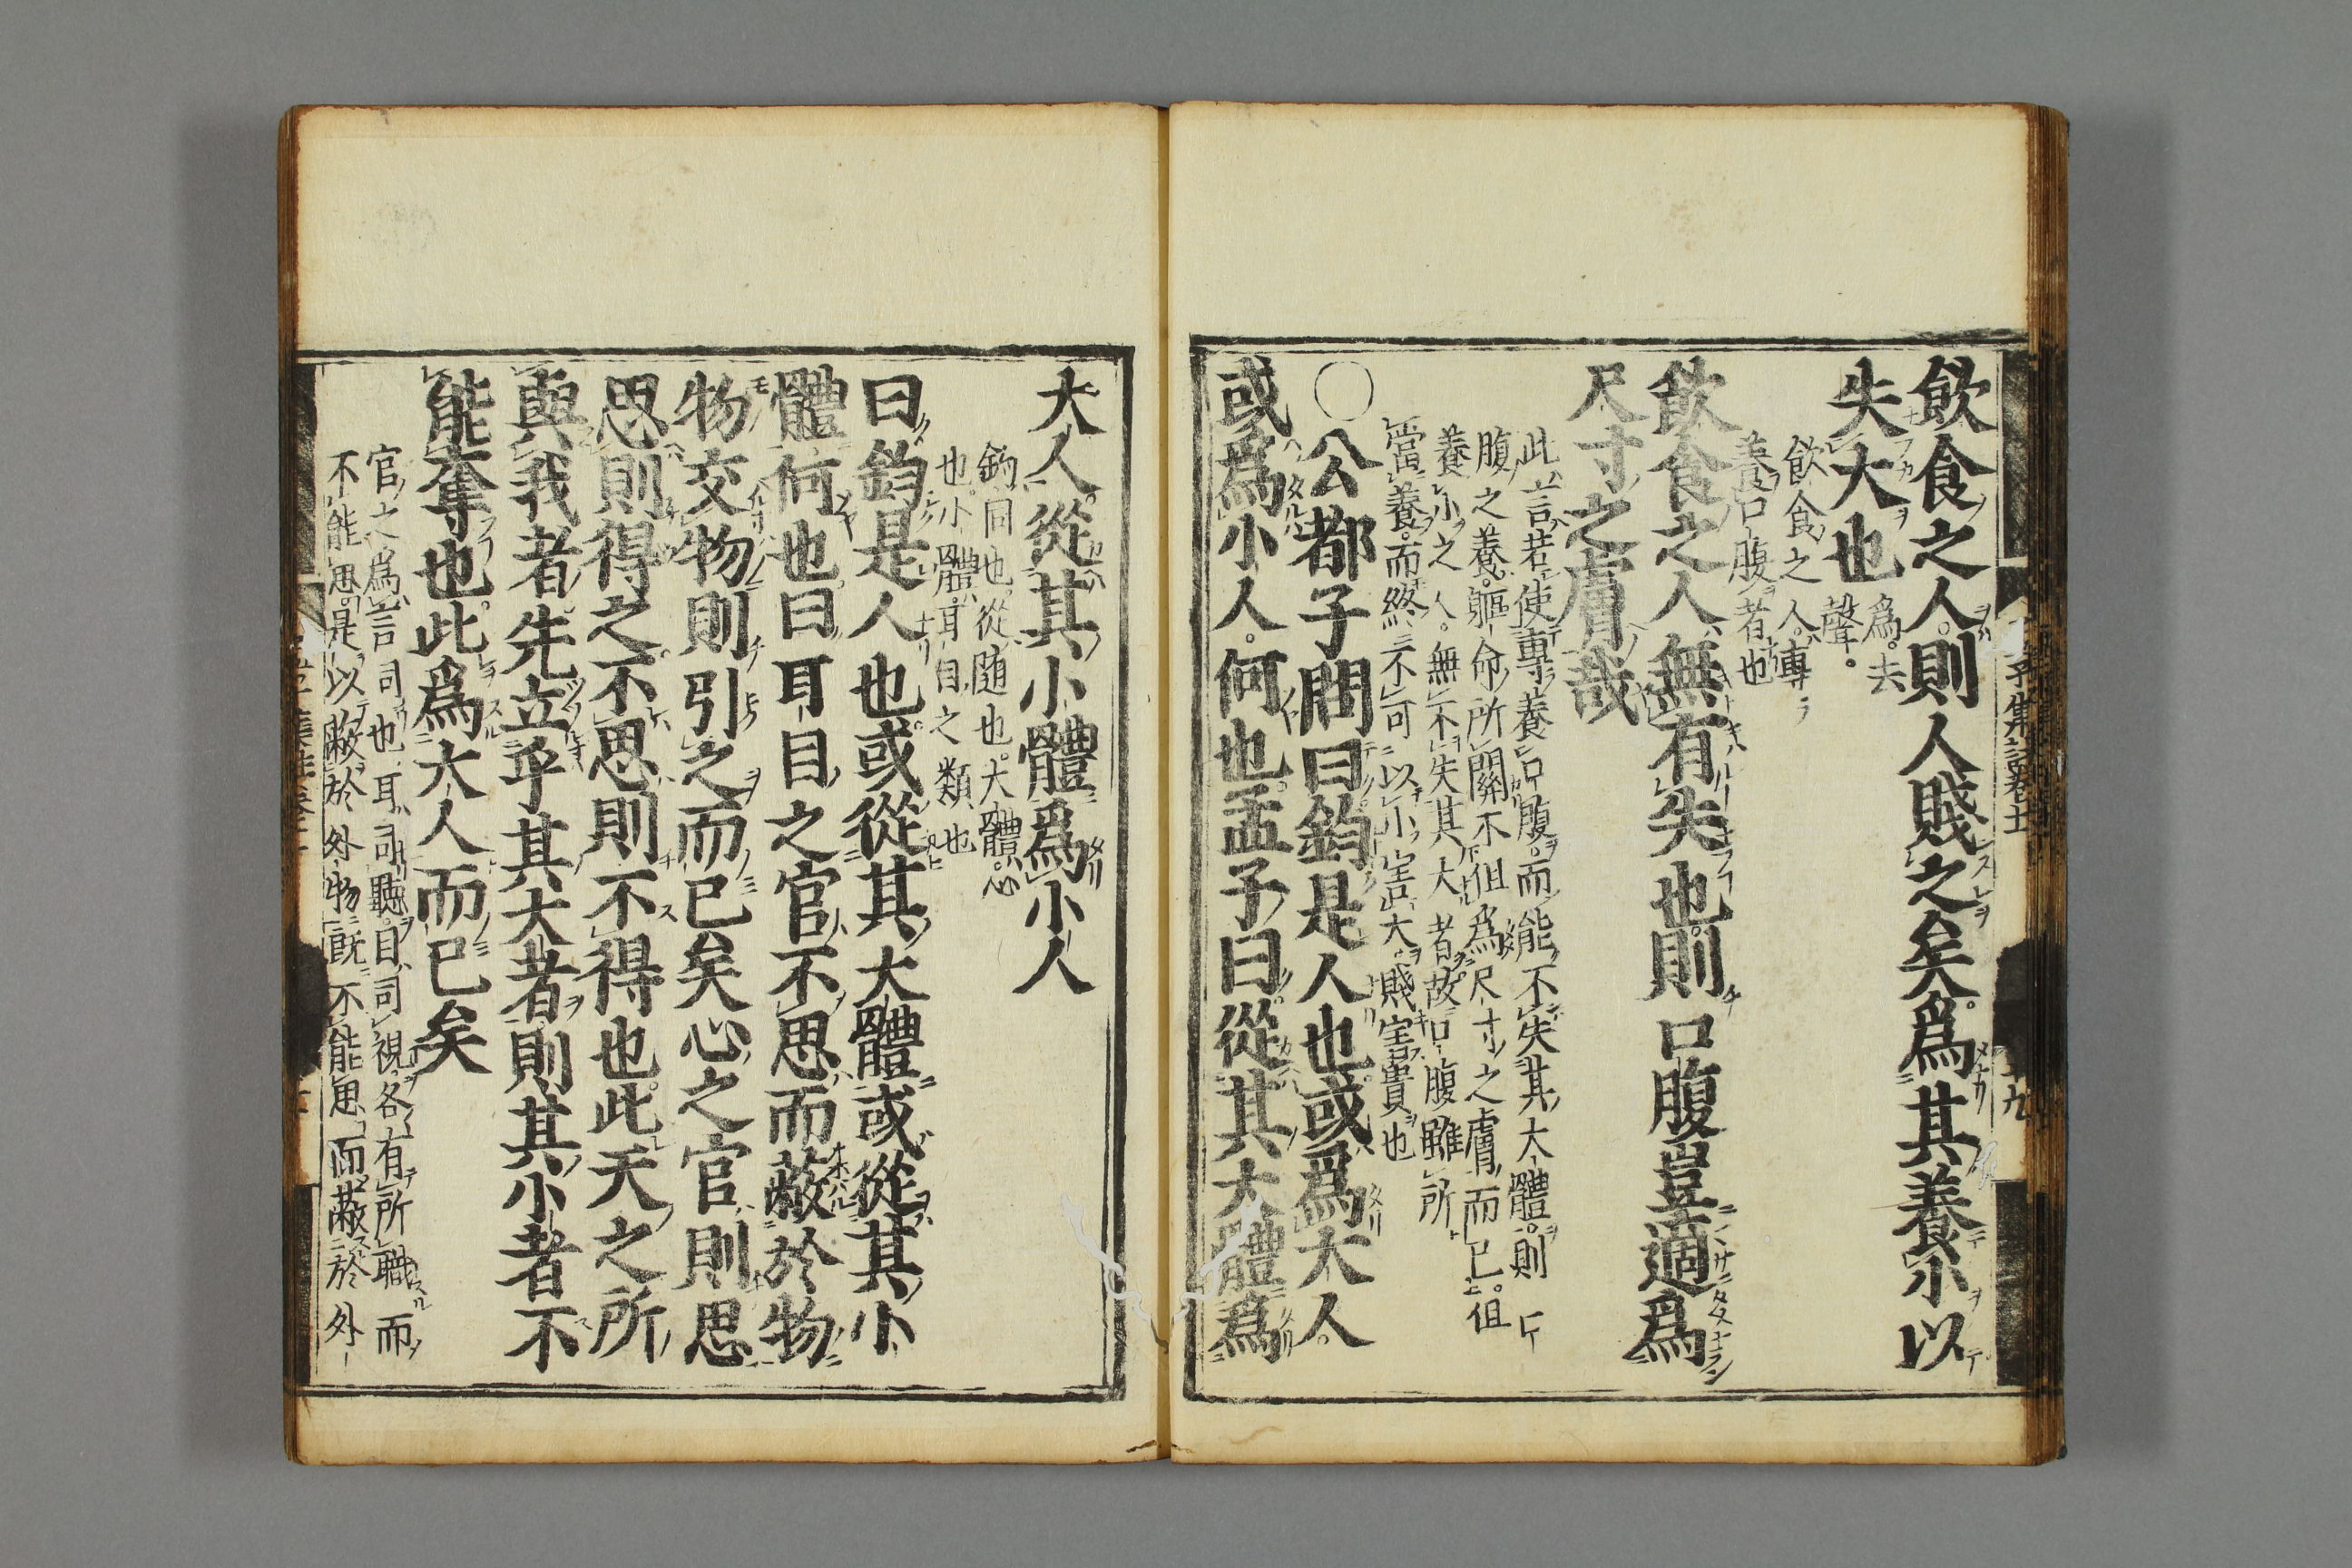 飲食之人則人賤之矣爲其養小以
失大也
爲去
聲
飲食之人專
養口腹者也
飲食之人無有失也則口腹豈適爲
尺寸之膚哉
此言若使專養口腹而能不失其大體則
腹之養軀命所關不但爲尺寸之膚而已但
養小之人無不失其大者故口腹雖所
當養而終不可以小害大賤害貴也
○公都子問曰鈞是人也或爲大人
或爲小人何也孟子曰從其大體爲
大人從其小體爲小人
鈞同也從隨也大體心
也小體耳目之類也
曰鈞是人也或從其大體或從其小
體何也曰耳目之官不思而蔽於物
物交物則引之而已矣心之官則思
思則得之不思則不得也此天之所
與我者先立乎其大者則其小者不
能奪也此爲大人而已矣
官之爲言司也耳司聽目司視各有所職而
不能思是以蔽於外物既不能思而蔽於外